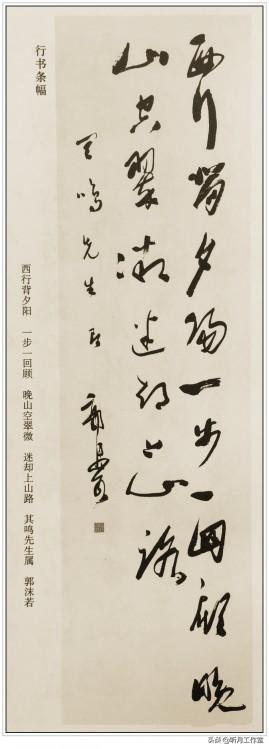 西行背夕陽一步一回顧晚
山空翠微迷却上山路
其鳴先生属 郭沫若
行书条幅
西行背夕阳 一步一回顾 晚山空翠微 迷却上山路 其鸣先生属 郭沫若
头条@昕月工作室